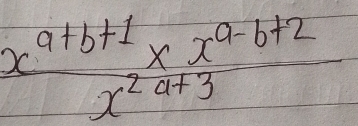 x^{a+b+1} × x^{a-b+2}
x^{2a+3}